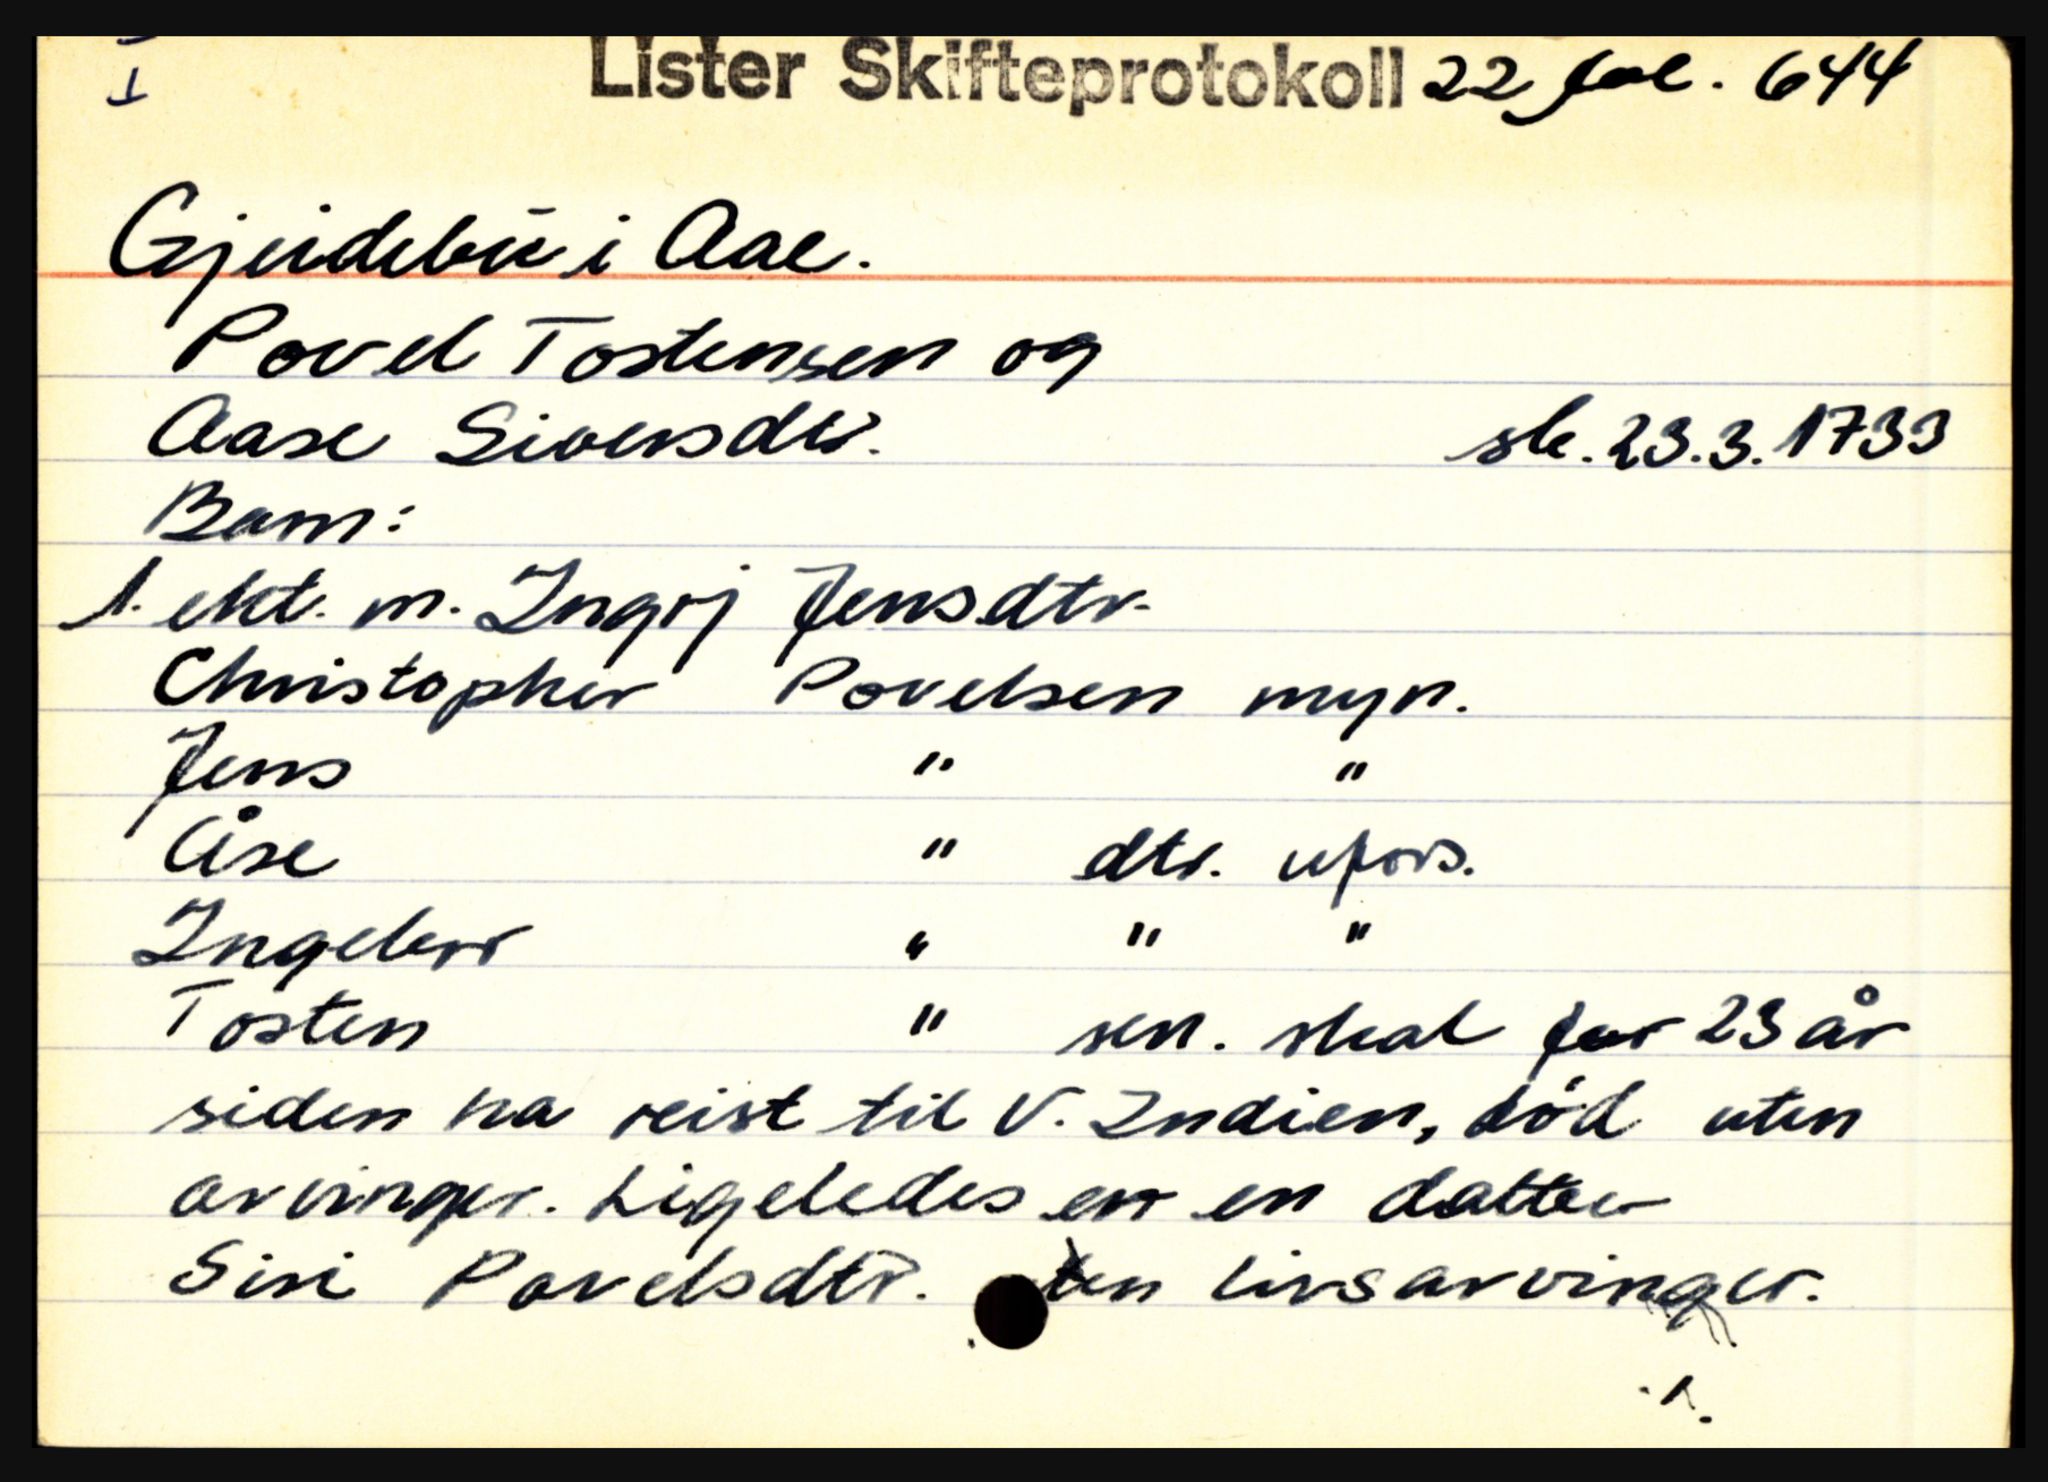 I
Lister Skifteprotokoll 22 fol. 644
Gjeideböe i Aae.
Povel Tostensen og
Aase Siversdtr. sk. 23.3.1733
Barn:
1. ekt. m. Ingrj Jensdtr.
Christopher Povelsen myn.
Jens " "
Åse " dtr. ufors.
Ingebor " " "
Tosten " sen. skal for 23 år
siden ha reist til V. Indien, död uten
arvinger. Ligeledes er en datter
Siri Povelsdtr. uten livsarvinger.